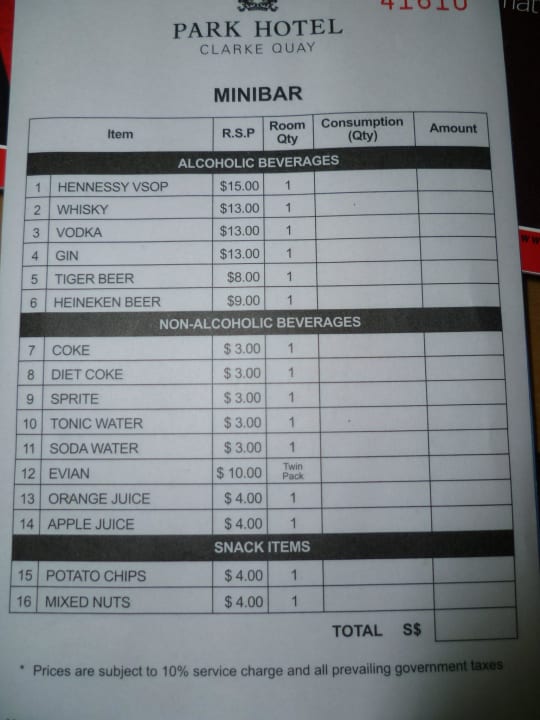 41610
PARK HOTEL
CLARKE QUAY
MINIBAR
Item R.S.P Room Qty Consumption (Qty) Amount
ALCOHOLIC BEVERAGES
1 HENNESSY VSOP $15.00 1
2 WHISKY $13.00 1
3 VODKA $13.00 1
4 GIN $13.00 1
5 TIGER BEER $8.00 1
6 HEINEKEN BEER $9.00 1
NON-ALCOHOLIC BEVERAGES
7 COKE $ 3.00 1
8 DIET COKE $ 3.00 1
9 SPRITE $ 3.00 1
10 TONIC WATER $ 3.00 1
11 SODA WATER $ 3.00 1
12 EVIAN $ 10.00 Twin Pack
13 ORANGE JUICE $ 4.00 1
14 APPLE JUICE $ 4.00 1
SNACK ITEMS
15 POTATO CHIPS $ 4.00 1
16 MIXED NUTS $ 4.00 1
TOTAL S$
* Prices are subject to 10% service charge and all prevailing government taxes